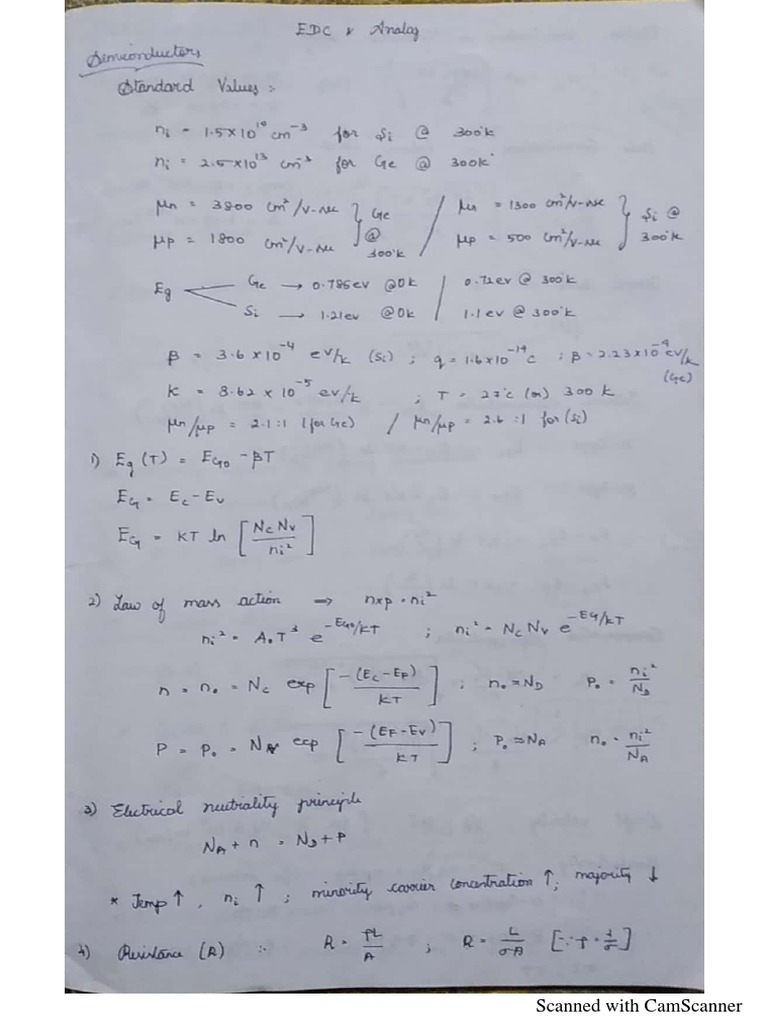 EDC & Analog
Semiconductors
Standard Values :-
ni = 1.5×10^10 cm^-3 for Si @ 300°k
ni = 2.5×10^13 cm^-3 for Ge @ 300k°
μn = 3800 cm²/V-sec } Ge @ 300k / μn = 1300 cm²/V-sec } Si @ 300°k
μp = 1800 cm²/V-sec / μp = 500 cm²/V-sec
Eg Ge → 0.785ev @0k / 0.72ev @ 300°k
Si → 1.21ev @0k / 1.1ev @ 300°k
β = 3.6×10^-4 ev/k (Si) ; q = 1.6×10^-19 c ; β = 2.23×10^-4 ev/k (Ge)
K = 8.62 × 10^-5 ev/k ; T = 27°c (or) 300 k
μn/μp = 2.1:1 (for Ge) / μn/μp = 2.6 :1 for (Si)
1) Eg (T) = EG0 - βT
EG = Ec - Ev
EG = KT ln [Nc Nv / ni²]
2) Law of mass action ⇒ n×p = ni²
ni² = A0T³ e^-EG0/KT ; ni² = Nc Nv e^-EG/KT
n = n0 = Nc exp [-(Ec-EF) / KT] ; n0 ≈ ND P0 = ni²/ND
P = P0 = Nv exp [-(EF-Ev) / KT] ; P0 ≈ NA n0 = ni²/NA
3) Electrical neutrality principle
NA + n = ND + P
* Temp ↑, ni ↑ ; minority carrier concentration ↑; majority ↓
4) Resistance (R) :- R = ρL/A ; R = L/σA [∵ρ = 1/σ]
Scanned with CamScanner